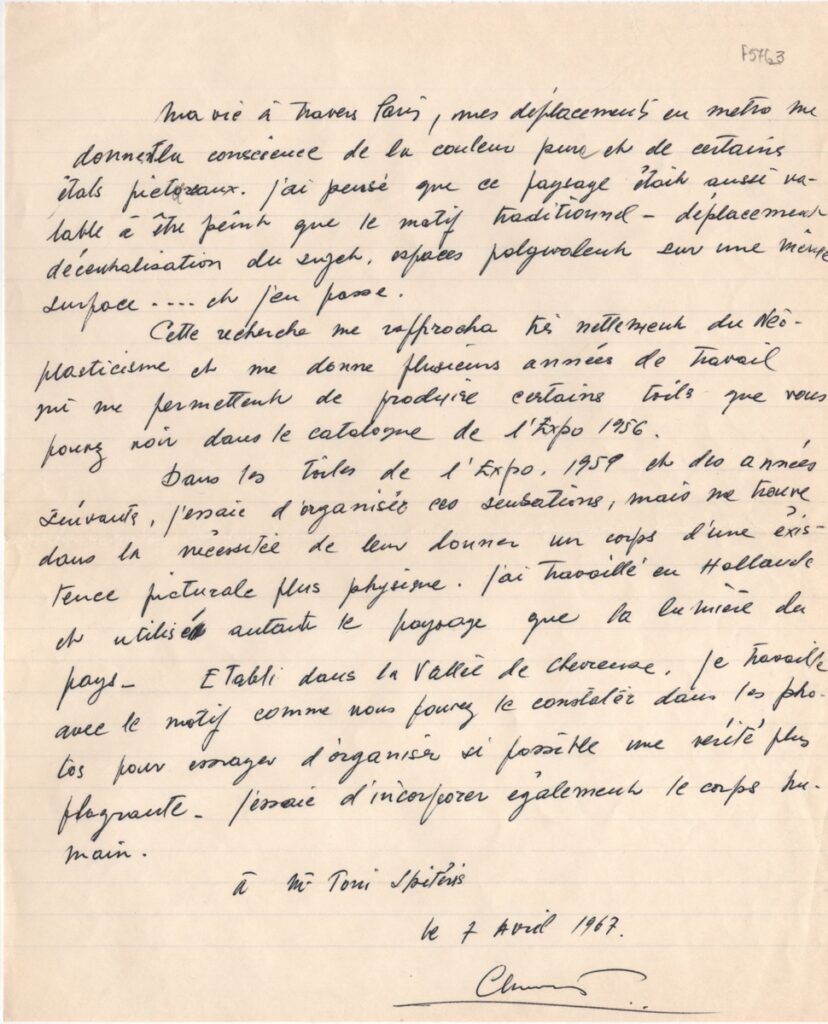 F5763
Ma vie à travers Paris, mes déplacements en metro me
donnent la conscience de la couleur pure et de certains
états picturaux. J'ai pensé que ce paysage était aussi va-
lable à être peint que le motif traditionnel - déplacement
décentralisation du sujet, espaces polyvalents sur une même
surface .... et j'en passe.
Cette recherche me rapprocha très nettement du Néo-
plasticisme et me donne plusieurs années de travail
qui me permettent de produire certains toiles que vous
pouvez voir dans le catalogue de l'Expo 1956.
Dans les toiles de l'Expo. 1959 et des années
suivants, j'essaie d'organiser ces sensations, mais me trouve
dans la nécessitée de leur donner un corps d'une éxis-
tence picturale plus physique. J'ai travaillé en Hollande
et utilisé autant le paysage que la lumière du
pays - Etabli dans la Vallée de Chevreuse, je travaille
avec le motif comme vous pouvez le constatér dans les pho-
tos pour essayer d'organiser si possible une vérité plus
flagrante - J'essaie d'incorporer également le corps hu-
main.
à Mr Toni Spitéris
le 7 Avril 1967.